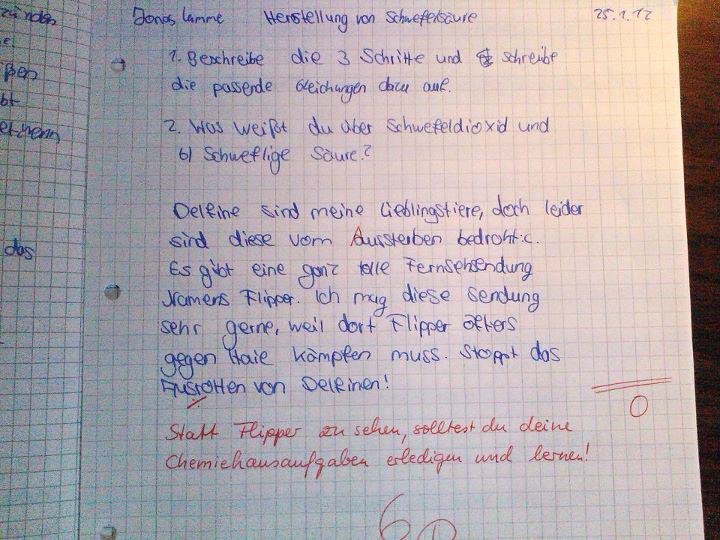 zünden
Jonas Lamme Herstellung von Schwefelsäure 25.1.12
1. Beschreibe die 3 Schritte und schreibe
die passende Gleichungen dazu auf.
2. Was weißt du über Schwefeldioxid und
b) Schweflige Säure?
Delfine sind meine Lieblingstiere, doch leider
sind diese vom Aussterben bedroht :c.
das
Es gibt eine ganz tolle Fernsehsendung
Namens Flipper. Ich mag diese Sendung
sehr gerne, weil dort Flipper öfters
gegen Haie kämpfen muss. Stoppt das
Ausrotten von Delfinen!
0
Statt Flipper zu sehen, solltest du deine
Chemiehausaufgaben erledigen und lernen!
6